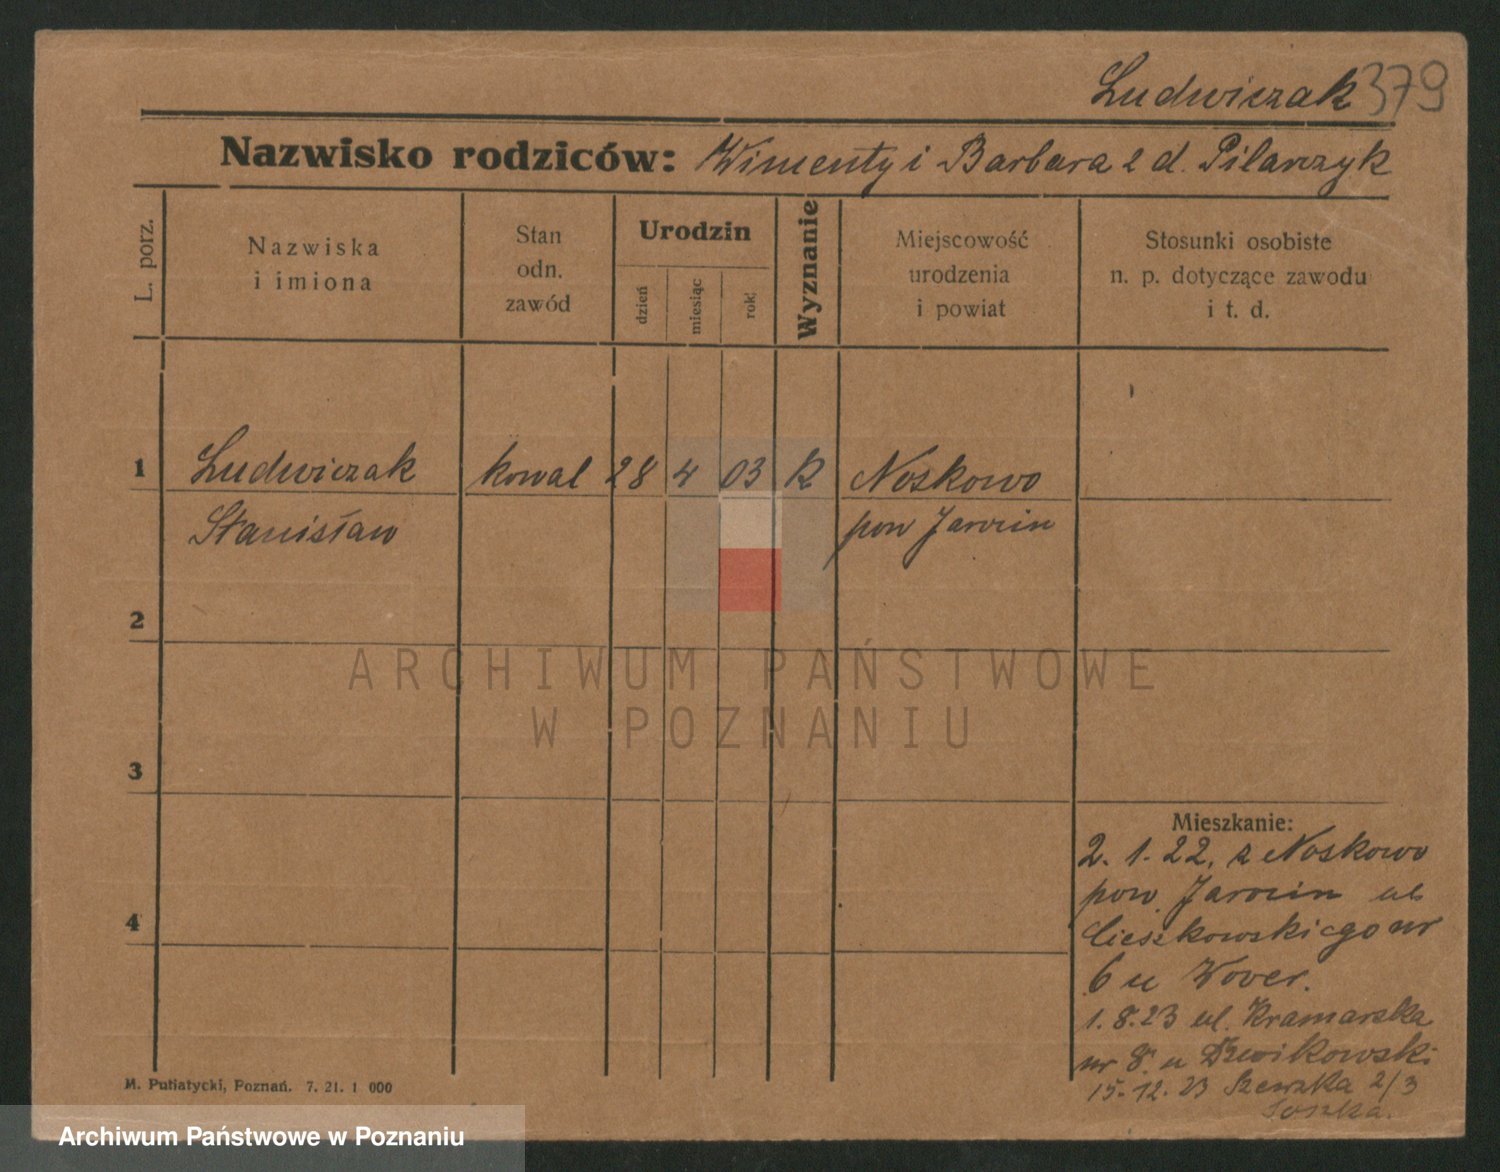 Ludwiczak 379
Nazwisko rodziców: Winenty i Barbara z d. Pilarczyk
L. porz.
Nazwiska
i imiona
Stan
odn.
zawód
Urodzin
dzień
miesiąc
rok
Wyznanie
Miejscowość
urodzenia
i powiat
Stosunki osobiste
n. p. dotyczące zawodu
i t. d.
1 Ludwiczak kowal 28 4 03 K Noskowo
Stanisław pow Jarocin
2
3
4
Mieszkanie:
2. 1. 22. z Noskowo
pow. Jarocin ul
Cieszkowskiego nr
6 u Wover.
1. 8. 23 ul. Kramarska
nr 8. u
15. 12. 23 Szewska 2/3
M. Putiatycki, Poznań. 7. 21. 1 000
ARCHIWUM PAŃSTWOWE
W POZNANIU
Archiwum Państwowe w Poznaniu